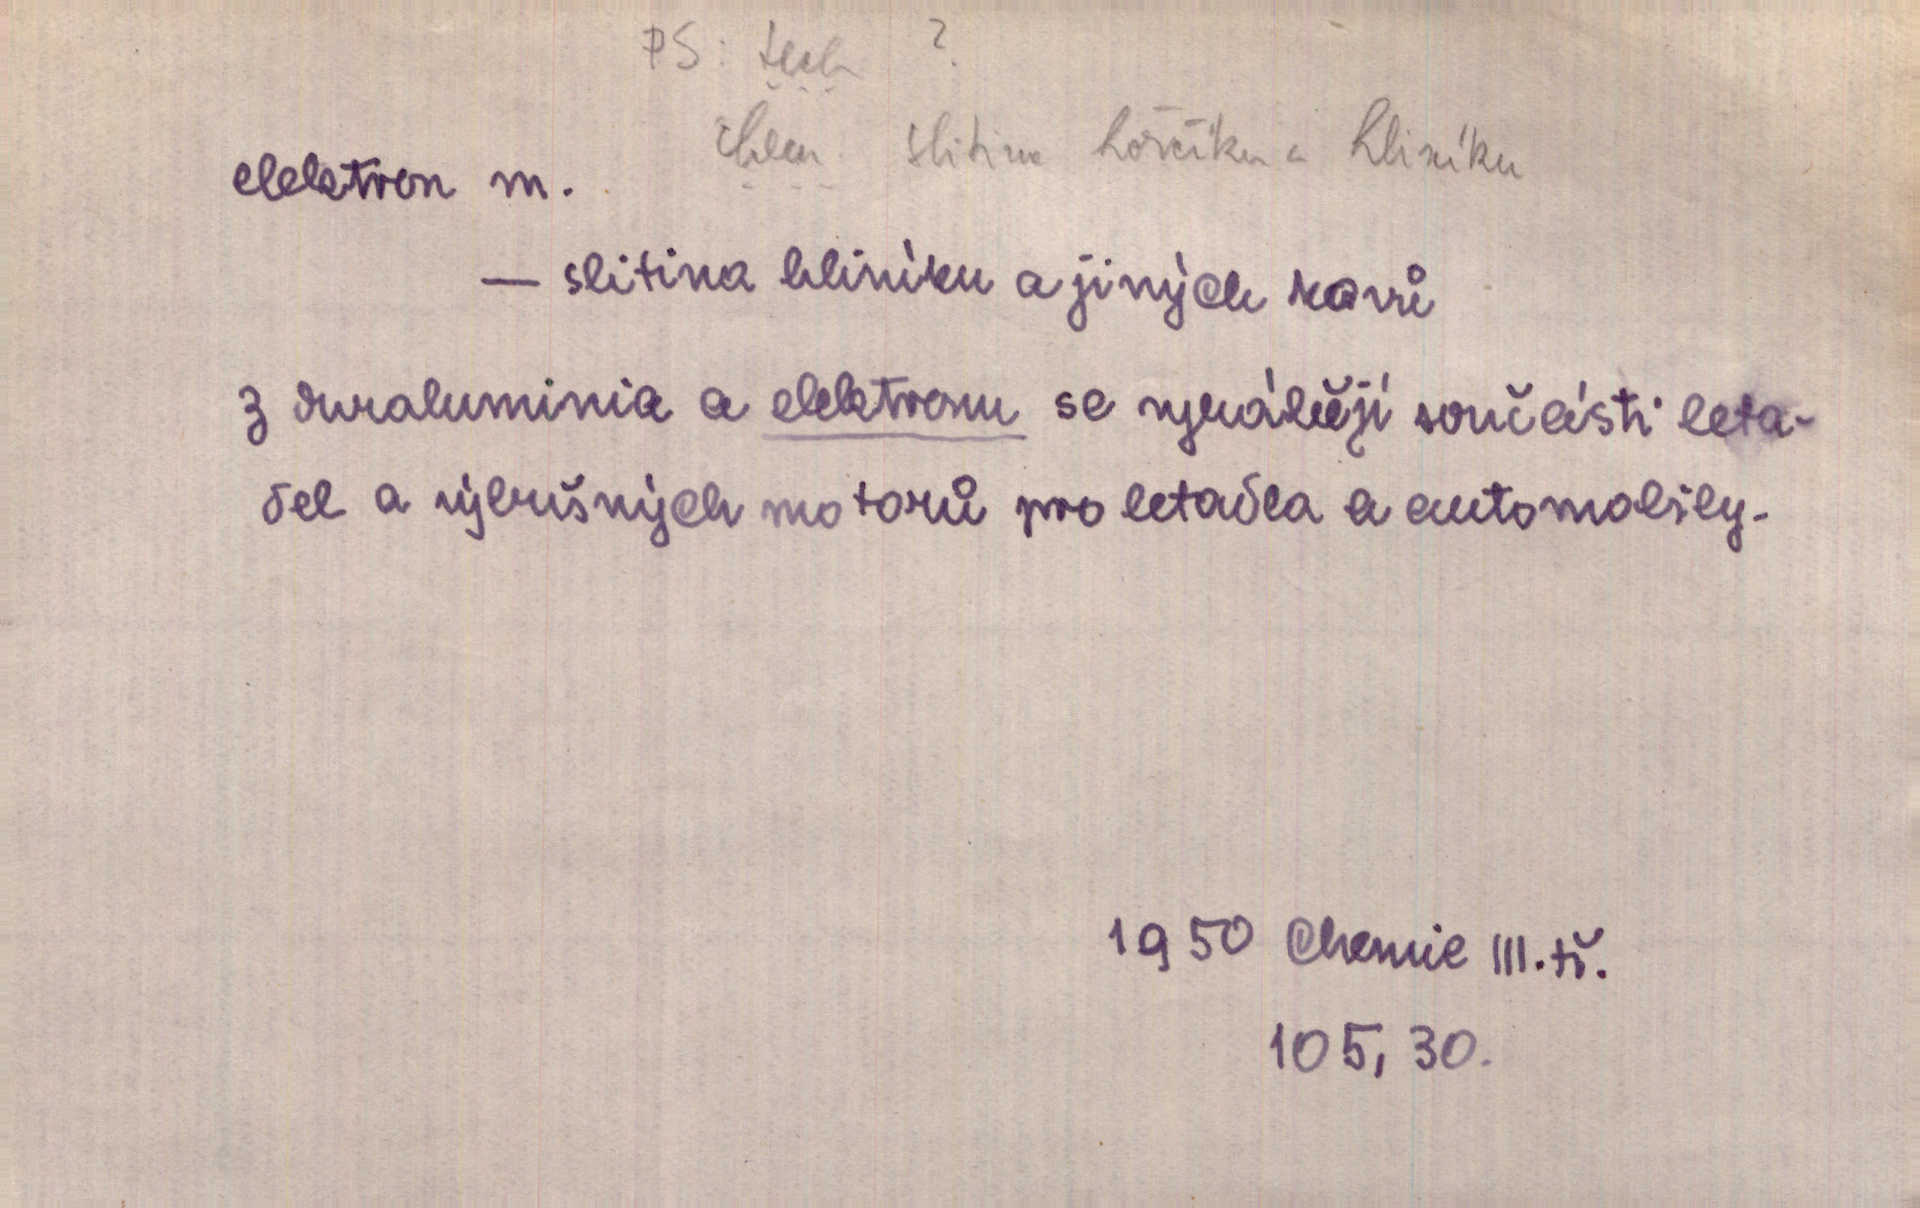 PS: tech ?
chem. slitina hořčíku a hliníku
elektron m.
— slitina hliníku a jiných kovů
z duraluminia a elektronu se vyrábějí součásti leta-
del a výbušných motorů pro letadla a automobily.
1950 Chemie III. tř.
105, 30.